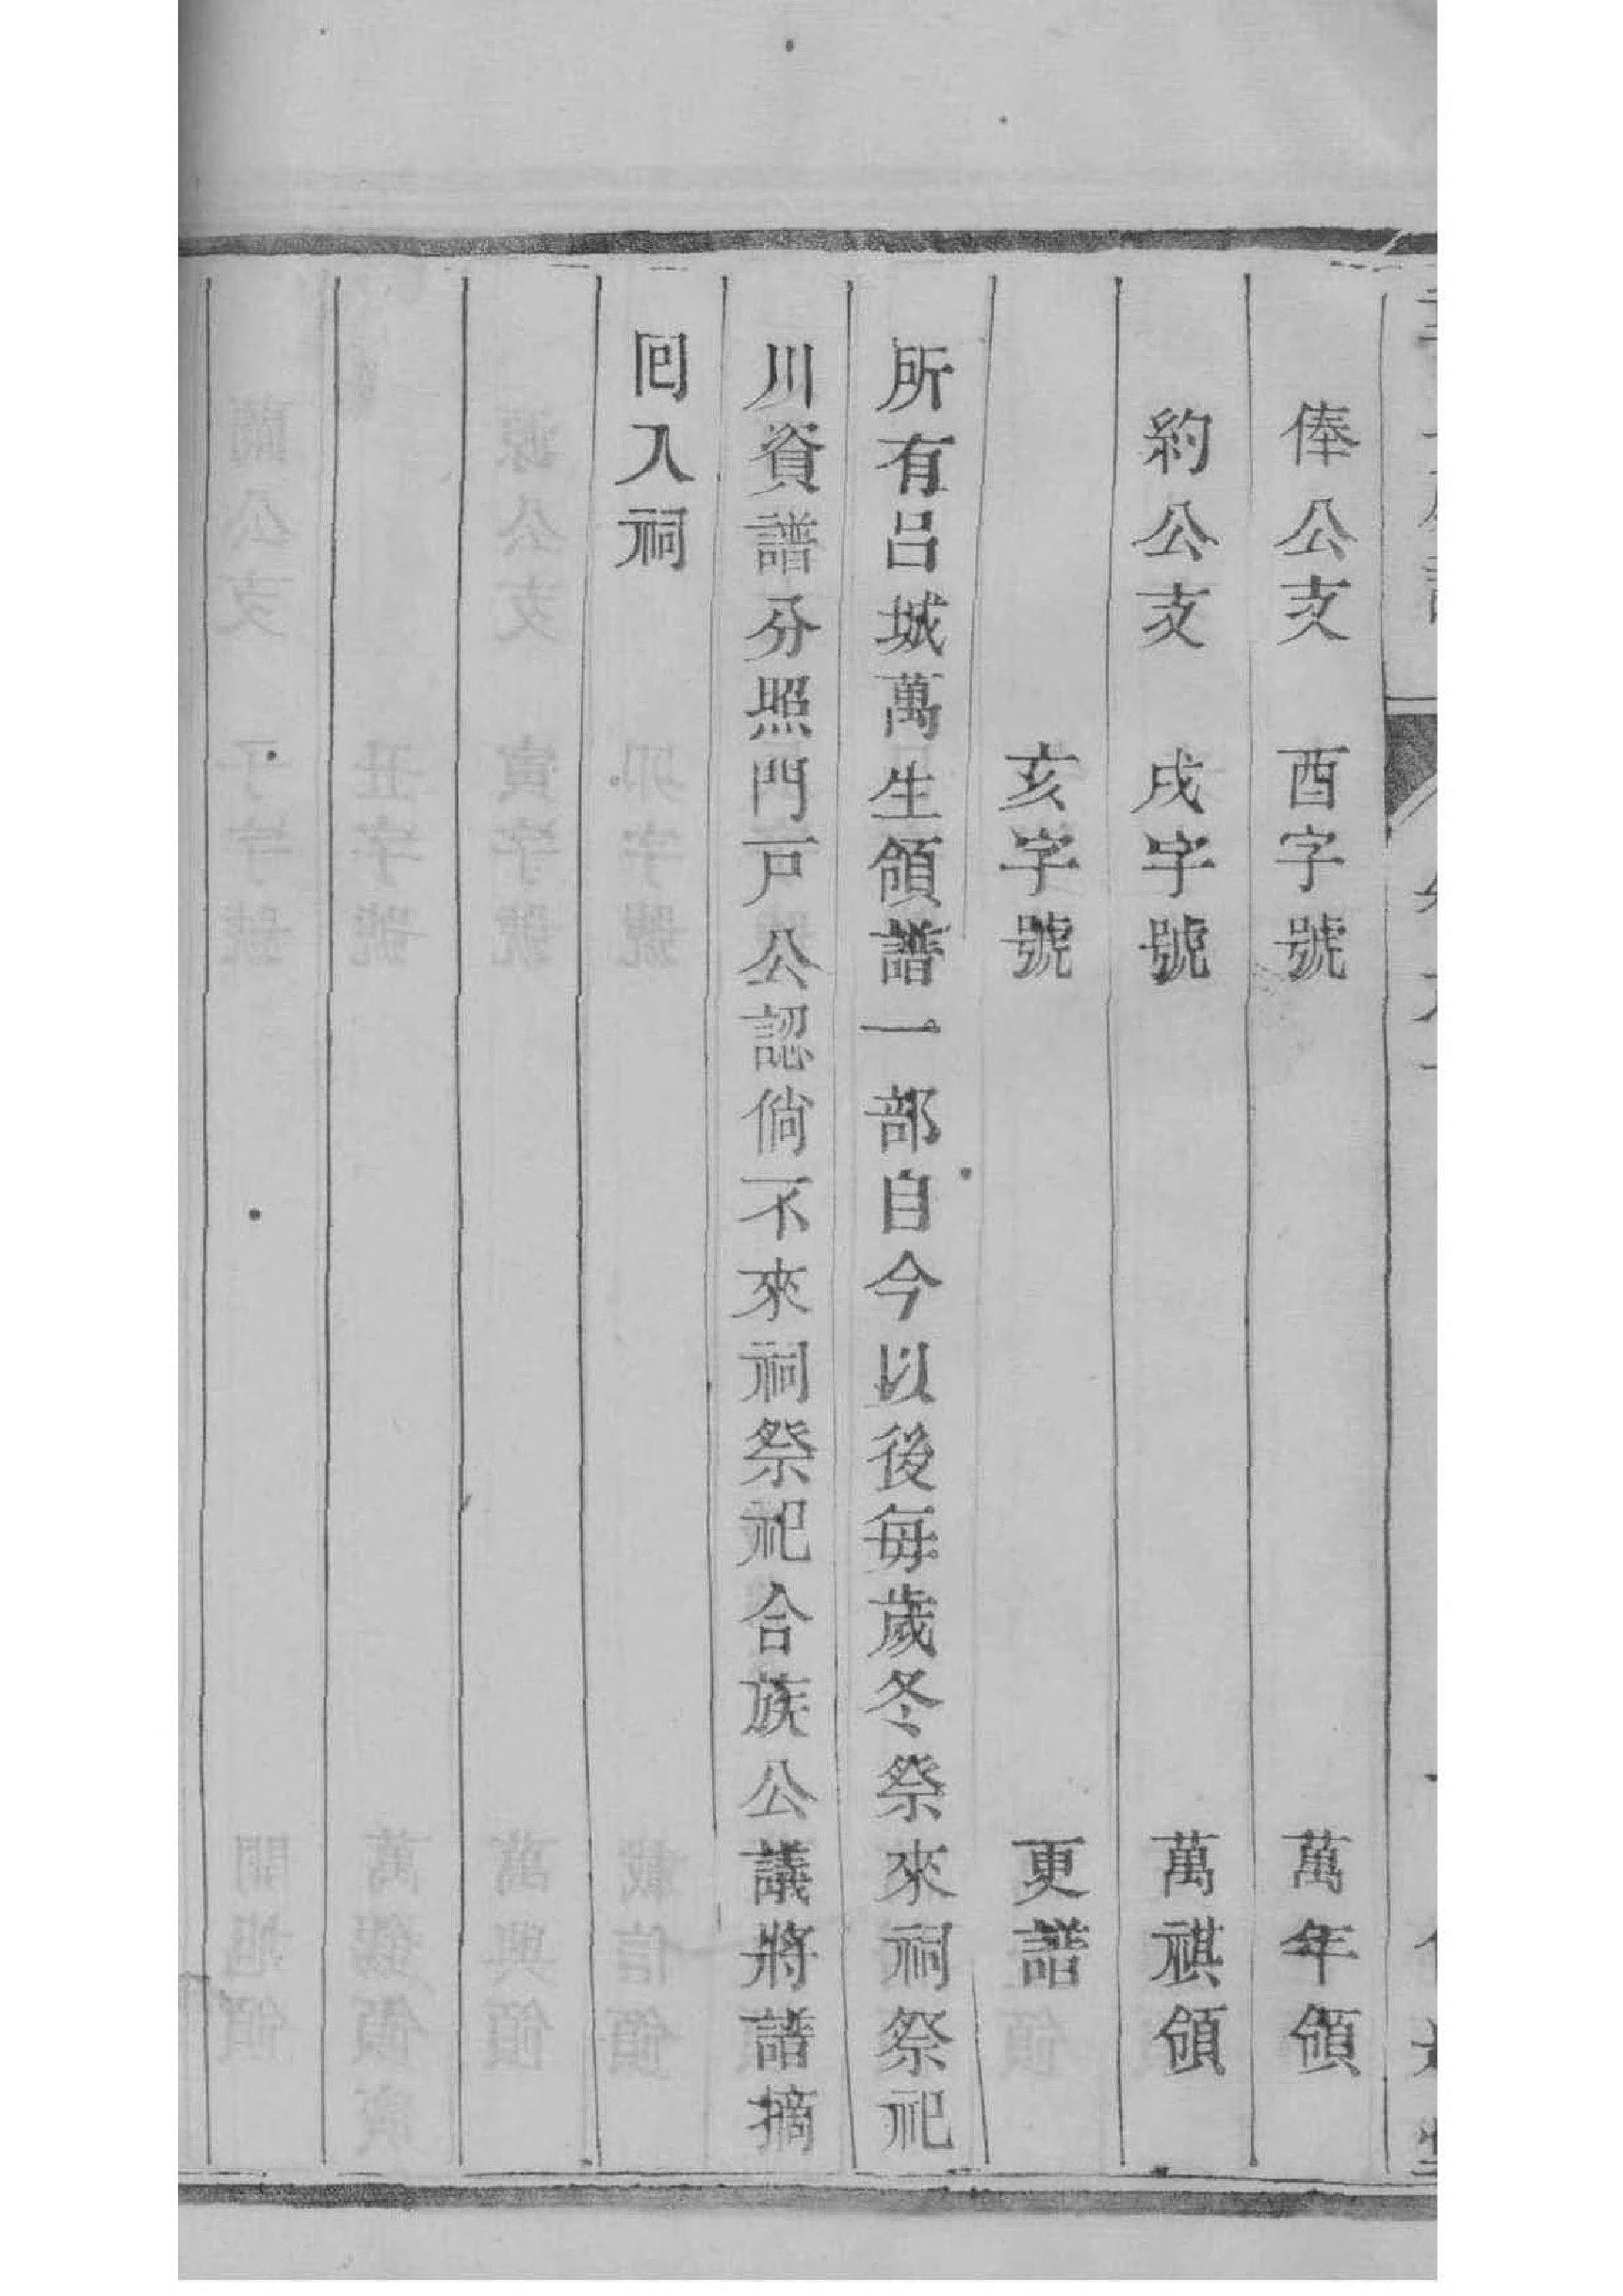 俸公支 酉字號 萬年領
約公支 戌字號 萬祺領
亥字號 更譜
所有呂城萬生領譜一部自今以後每歲冬祭來祠祭祀
川資譜分照門戶公認倘不來祠祭祀合族公議將譜摘
回入祠